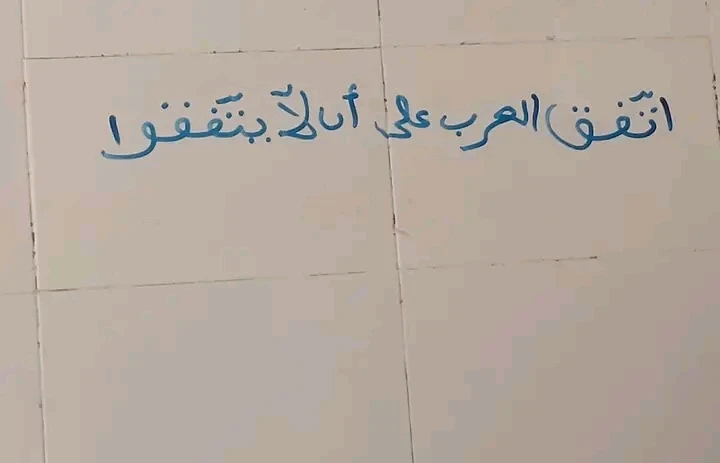 اتّفق العرب على أن لّا يتّفقوا